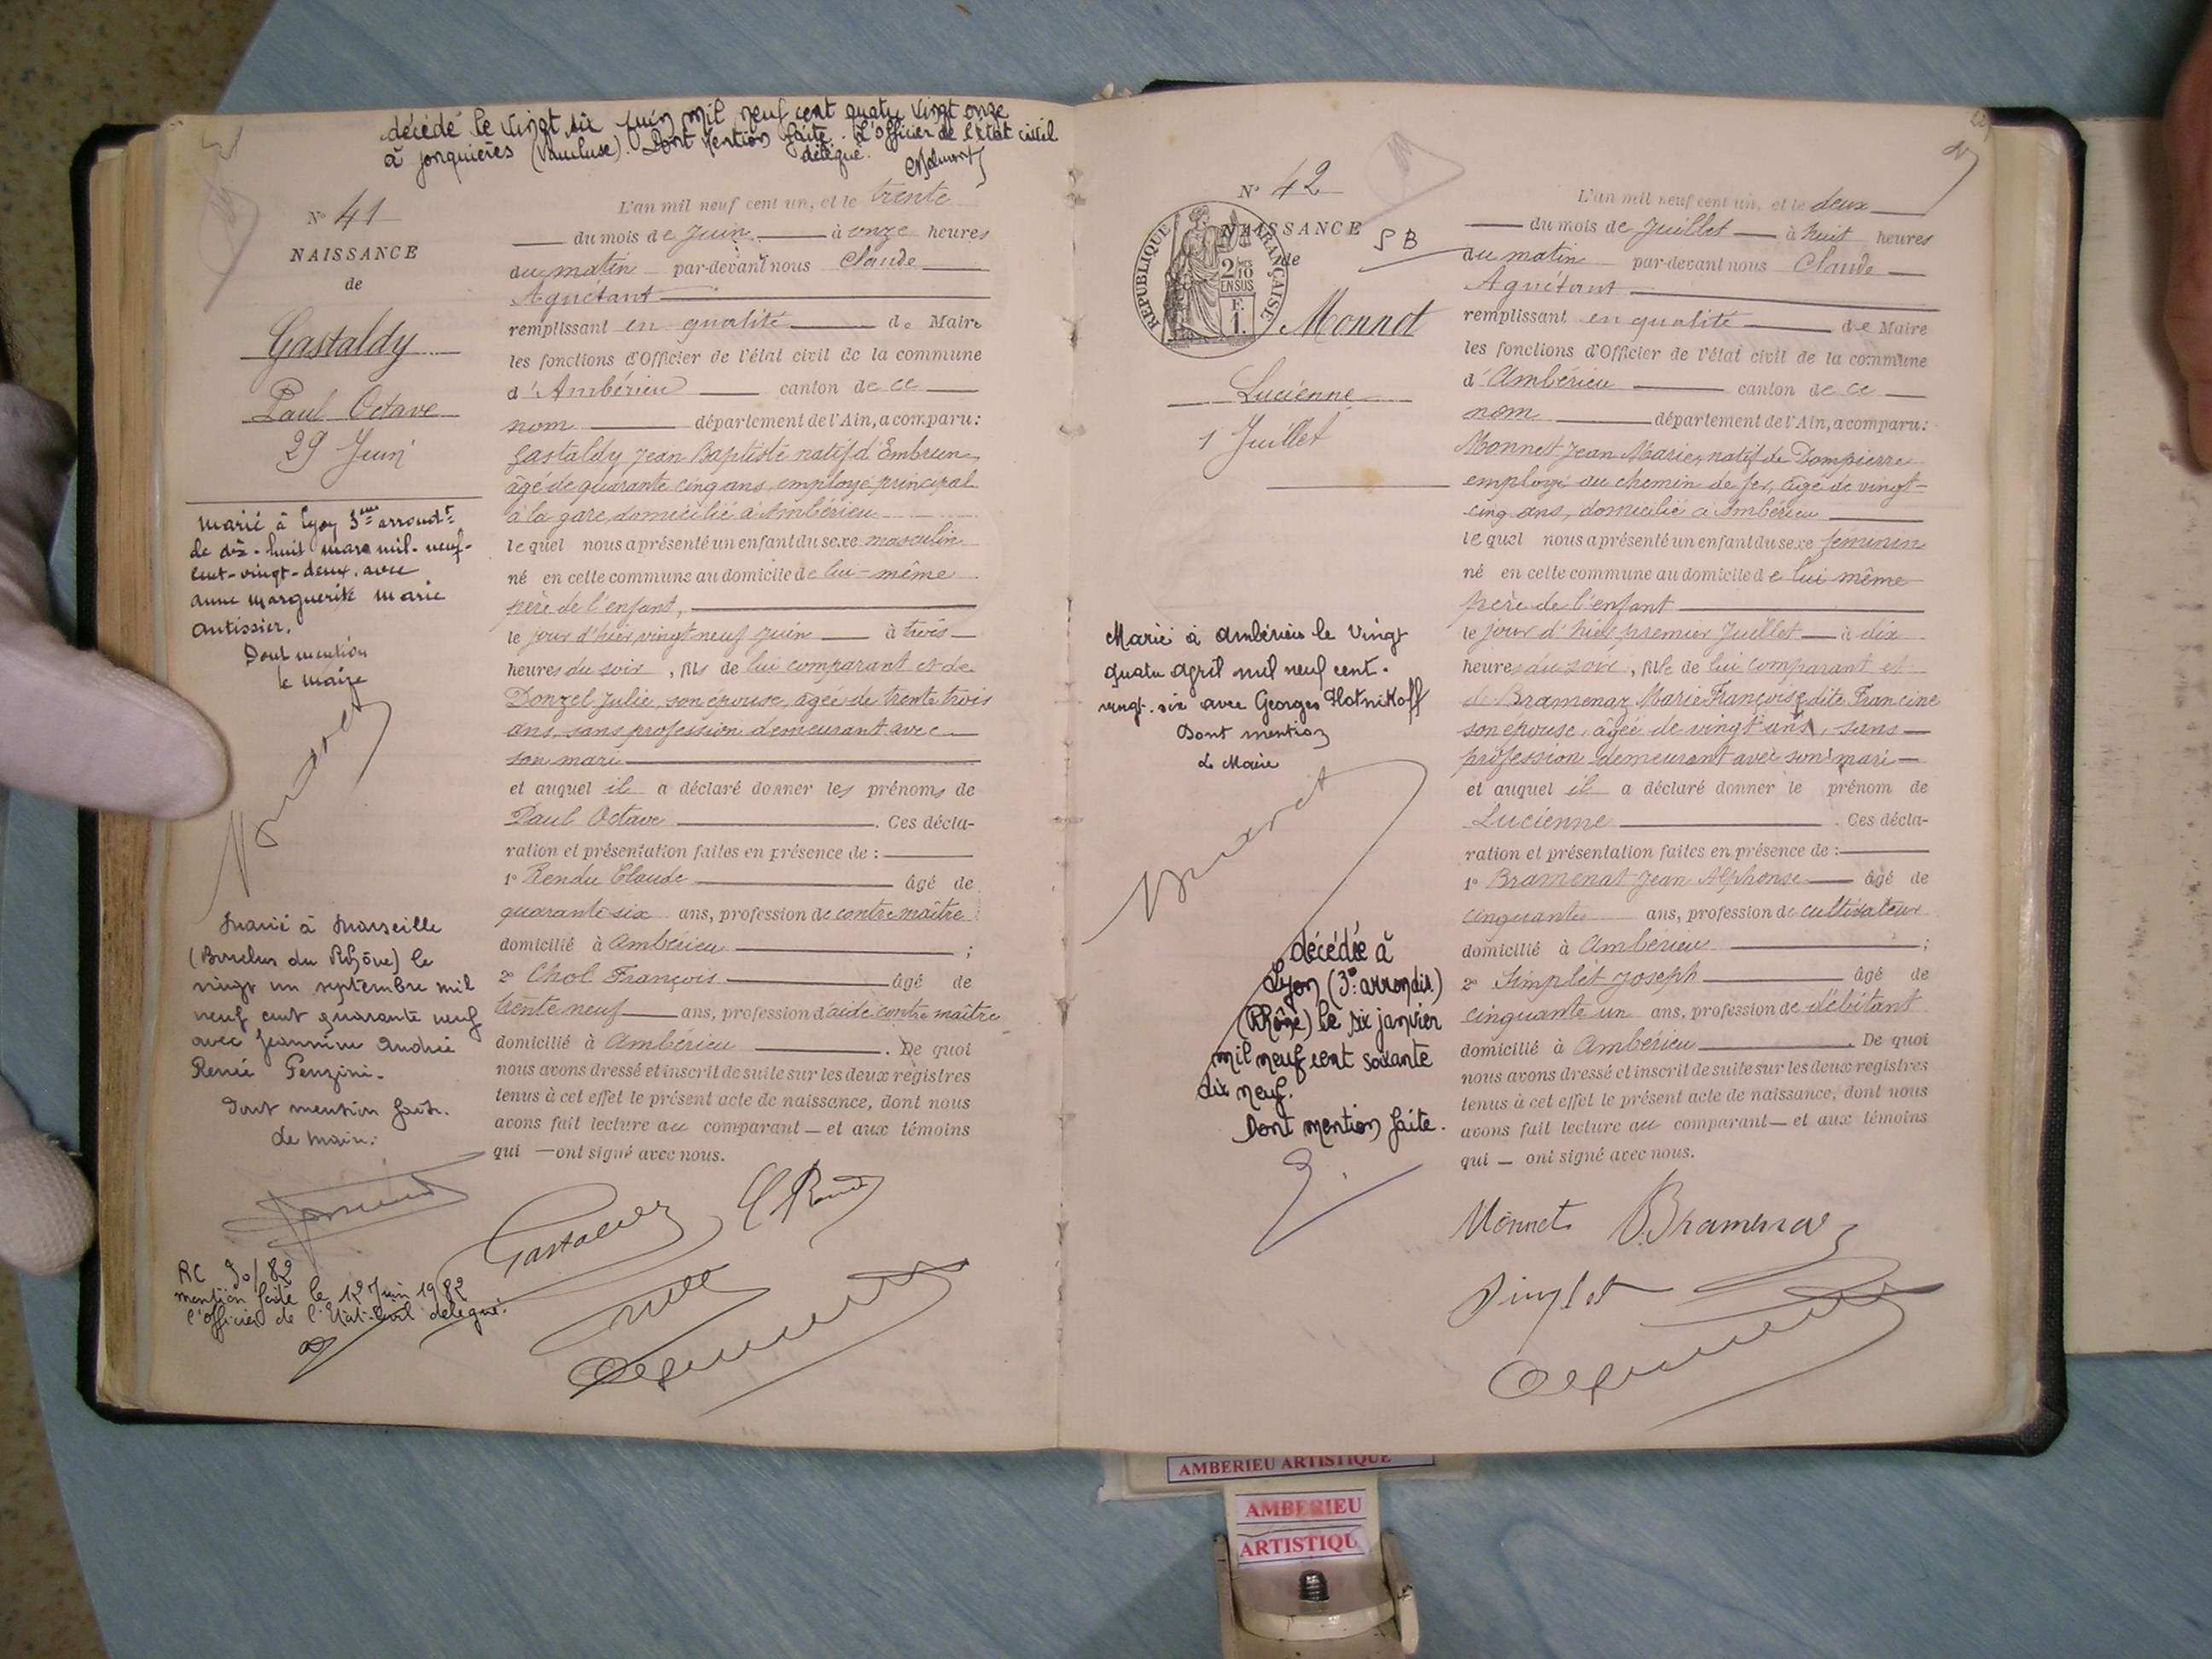 décédé le vingt six juin mil neuf cent quatre vingt onze
à Jonquières (Vaucluse). Dont mention faite. L'Officier de l'état civil
délégué.
N° 41
NAISSANCE
de
Gastaldy
Paul Octave
29 Juin
marié à Lyon 3eme arrondt
le dix-huit mars mil-neuf-
cent-vingt-deux, avec
anne marguerite marie
Dont mention
le maire
Marié à Marseille
(Bouches du Rhône) le
vingt un septembre mil
neuf cent quarante neuf
avec Jeannine Andrée
Renée
Dont mention faite.
Le Maire.
RC 90/82
mention faite le 12 Juin 1982
l'officier de l'Etat-Civil délégué.
L'an mil neuf cent un, et le trente
du mois de Juin à onze heures
du matin par-devant nous Claude
Aguétant
remplissant en qualité de Maire
les fonctions d'Officier de l'état civil de la commune
d'Ambérieu canton de ce
nom département de l'Ain, a comparu :
Gastaldy Jean Baptiste natif d'Embrun
âgé de quarante cinq ans, employé principal
à la gare, domicilié à Ambérieu
lequel nous a présenté un enfant du sexe masculin
né en cette commune au domicile de lui-même
père de l'enfant,
le jour d'hier, vingt neuf juin à trois
heures du soir, fils de lui comparant et de
Donzel Julie, son épouse, âgée de trente trois
ans, sans profession demeurant avec
son mari
et auquel il a déclaré donner les prénoms de
Paul Octave. Ces décla-
ration et présentation faites en présence de :
1° Rendu Claude âgé de
quarante six ans, profession de contre maître
domicilié à Ambérieu ;
2° Chol François âgé de
trente neuf ans, profession d'aide contre maître
domicilié à Ambérieu. De quoi
nous avons dressé et inscrit de suite sur les deux registres
tenus à cet effet le présent acte de naissance, dont nous
avons fait lecture au comparant — et aux témoins
qui — ont signé avec nous.
N° 42
NAISSANCE
de
RÉPUBLIQUE FRANÇAISE
2/10
EN SUS
F.
1.
S B
Monnet
Lucienne
1 Juillet
Marié à Ambérieu le vingt
quatre avril mil neuf cent-
vingt-six avec Georges Plotnikoff
Dont mention
Le Maire
décédée à
Lyon (3e arrondis.)
(Rhône) le six janvier
mil neuf cent soixante
dix neuf.
Dont mention faite.
L'an mil neuf cent un, et le deux
du mois de Juillet à huit heures
du matin par-devant nous Claude
Aguétant
remplissant en qualité de Maire
les fonctions d'Officier de l'état civil de la commune
d'Ambérieu canton de ce
nom département de l'Ain, a comparu :
Monnet Jean Marie, natif de Dompierre
employé au chemin de fer, âgé de vingt-
cinq ans, domicilié à Ambérieu
lequel nous a présenté un enfant du sexe féminin
né en cette commune au domicile de lui même
père de l'enfant
le jour d'hier premier Juillet — à dix
heures du soir, fille de lui comparant et
de Bramenaz Marie Françoise dite Francine
son épouse, âgée de vingt ans, sans
profession demeurant avec son mari
et auquel il a déclaré donner le prénom de
Lucienne. Ces décla-
ration et présentation faites en présence de :
1° Bramenat Jean Alphonse âgé de
cinquante ans, profession de cultivateur
domicilié à Ambérieu ;
2° Simplet Joseph âgé de
cinquante un ans, profession de débitant
domicilié à Ambérieu. De quoi
nous avons dressé et inscrit de suite sur les deux registres
tenus à cet effet le présent acte de naissance, dont nous
avons fait lecture au comparant — et aux témoins
qui — ont signé avec nous.
Monnet
AMBERIEU ARTISTIQUE
AMBERIEU
ARTISTIQU